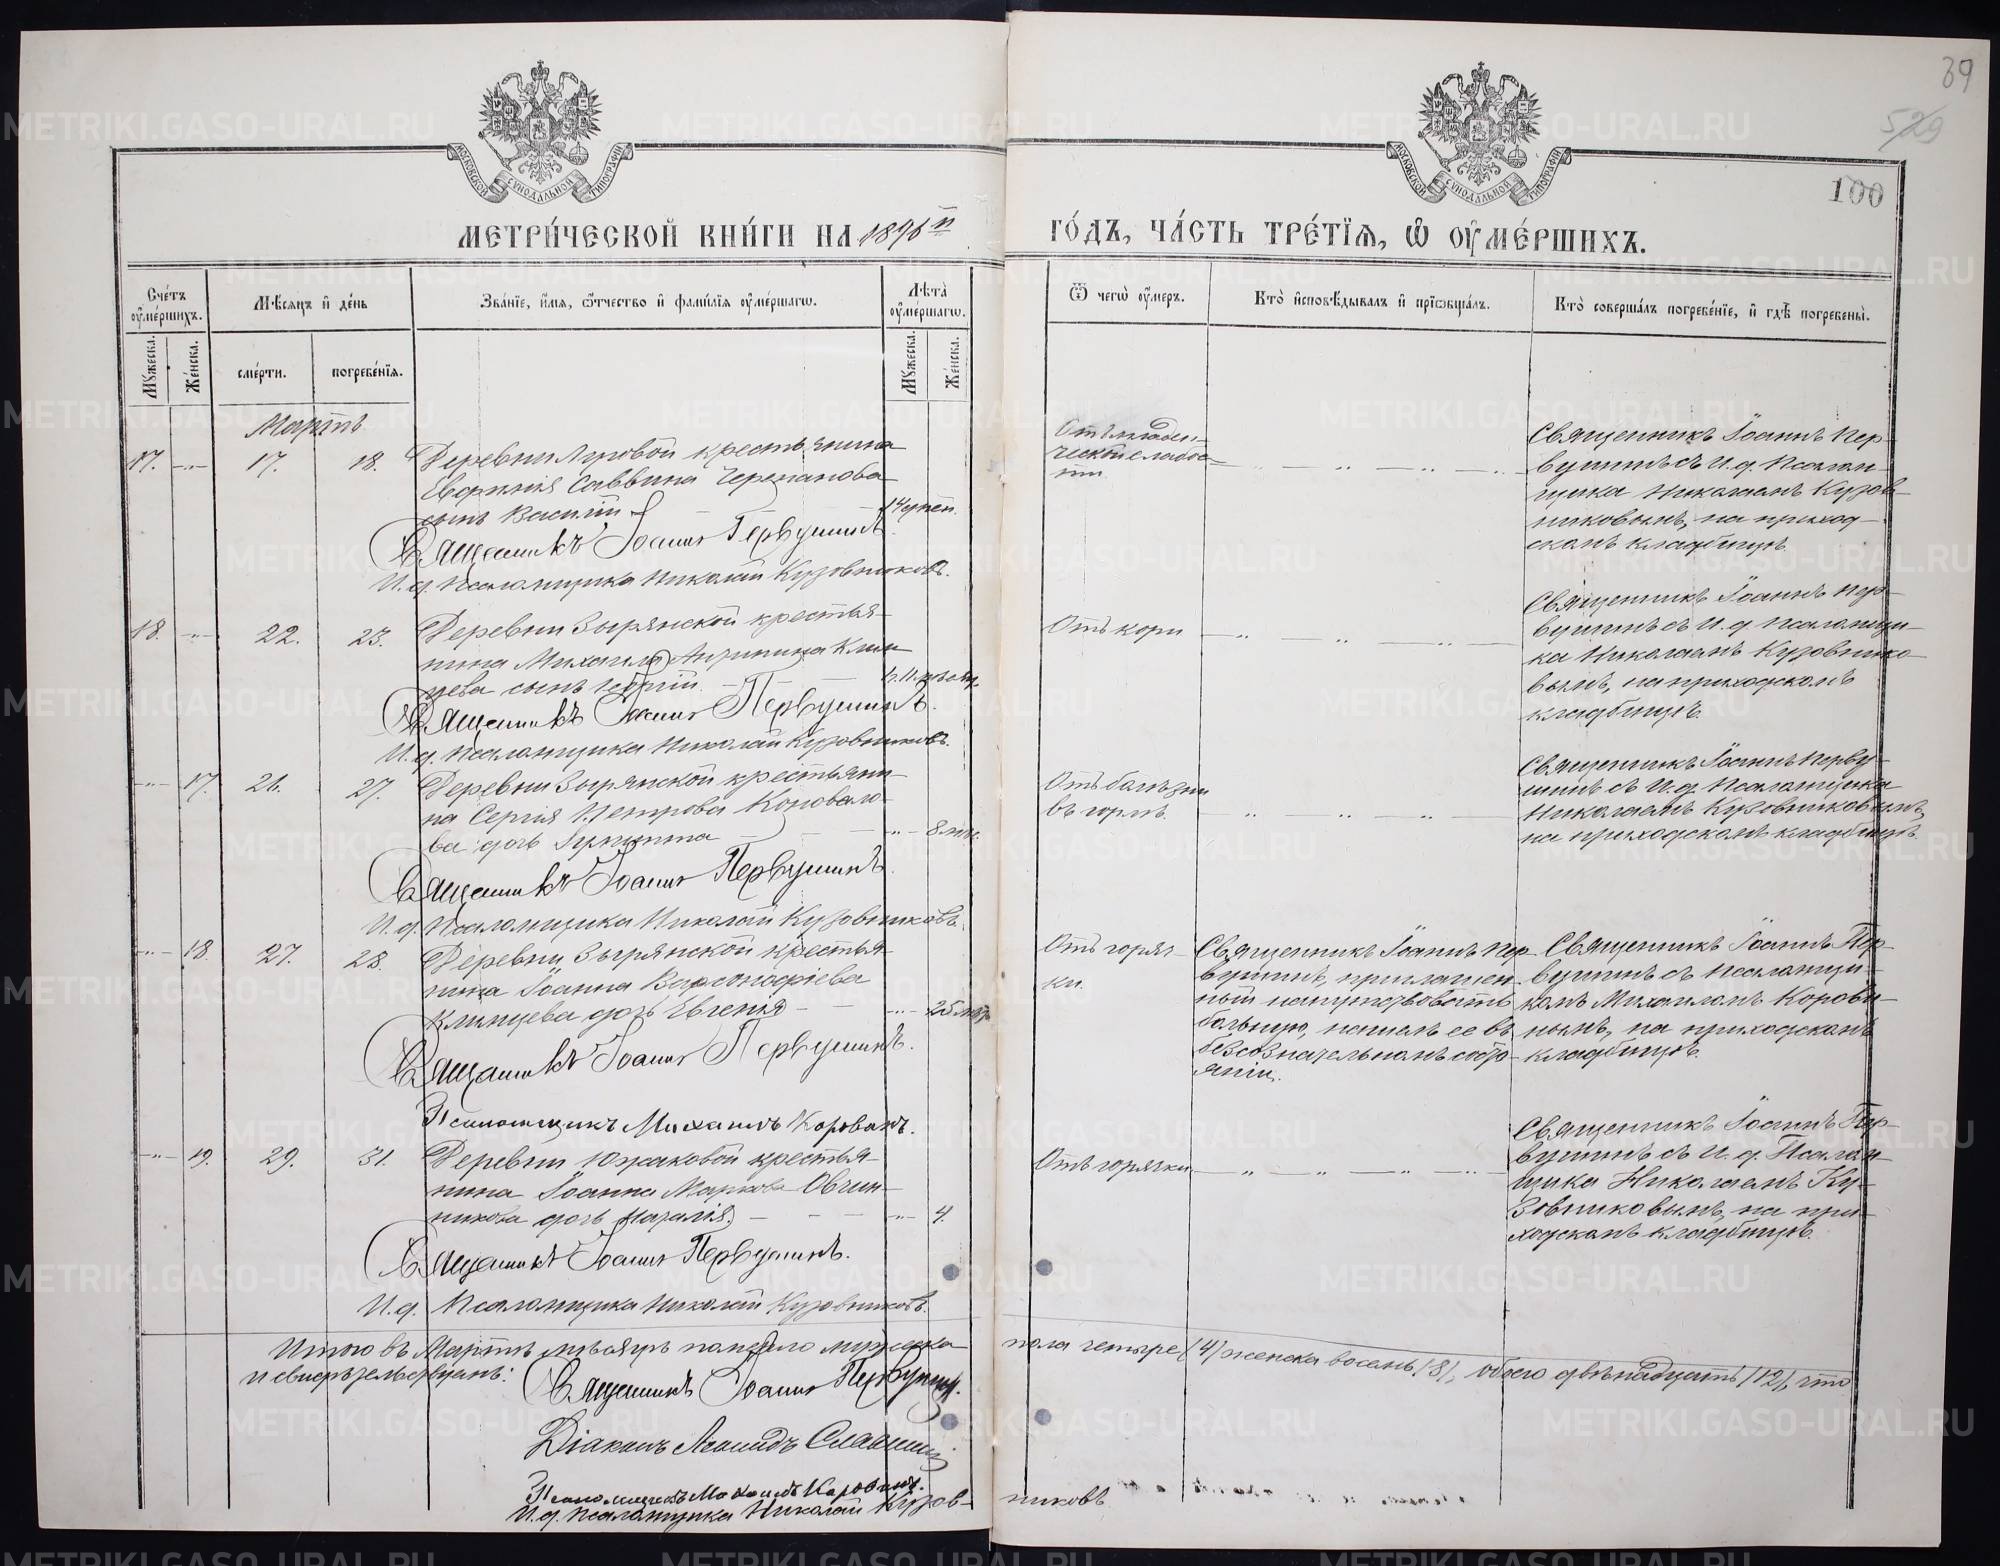 39
529
100
МОСКОВСКОЙ СѴНОДАЛЬНОЙ ТИПОГРАФІИ
МОСКОВСКОЙ СѴНОДАЛЬНОЙ ТИПОГРАФІИ
МЕТРИ́ЧЕСКОЙ КНИ́ГИ НА 1896й
ГО́ДЪ, ЧА́СТЬ ТРЕ́ТІѦ, Ѡ ОУМЕ́РШИХЪ.
Сче́тъ оуме́ршихъ.
Мꙋжеска.
Же́нска.
Мѣсѧцъ и де́нь
сме́рти.
погребе́нїѧ.
Зва́нїе, и́мѧ, ѻ́тчество и фами́лїѧ оуме́ршагѡ.
Лѣта̀ оуме́ршагѡ.
Мꙋжеска.
Же́нска.
Ѿ чегѡ̀ оу́меръ.
Кто̀ и҆сповѣ́дывалъ и҆ прїѡбща́лъ.
Кто̀ соверша́лъ погребе́нїе, и҆ гдѣ̀ погребены̀.
Мартъ
17. -"- 17. 18. Деревни Луговой крестьянина
Евфимія Саввина Черепанова
сынъ Василій
Священникъ Іоаннъ Первушинъ.
И.д. Псаломщика Николай Кузовниковъ.
Отъ младен-
ческой слабос-
ти.
Священникъ Іоаннъ Пер-
вушинъ съ И.д. Псалом-
щика Николаемъ Кузов-
никовымъ, на приход-
скомъ кладбищѣ.
18. -"- 22. 23. Деревни Зырянской крестья-
нина Михаила Клим
цева сынъ Георгій.
Священникъ Іоаннъ Первушинъ.
И.д. Псаломщика Николай Кузовниковъ.
Отъ кори
Священникъ Іоаннъ Пер-
вушинъ съ И.д. Псаломщи-
ка Николаемъ Кузовнико-
вымъ, на приходскомъ
кладбищѣ.
-"- 17. 26. 27. Деревни Зырянской крестьяни-
на Сергія Петрова Коновало-
ва дочь
-"- 8 мѣс.
Священникъ Іоаннъ Первушинъ.
И.д. Псаломщика Николай Кузовниковъ.
Отъ болѣзни
въ горлѣ.
Священникъ Іоаннъ Перву-
шинъ съ И.д. Псаломщика
Николаемъ Кузовниковымъ,
на приходскомъ кладбищѣ.
-"- 18. 27. 28. Деревни Зырянской крестья-
нина Іоанна Варсонофіева
Климцева дочь Евгенія -
-"- 25
Священникъ Іоаннъ Первушинъ.
Псаломщикъ Михаилъ Коровинъ.
Отъ горяч-
ки.
Священникъ Іоаннъ Пер-
вушинъ, приглашен-
ный напутствовать
больную, нашелъ ее въ
безсознательномъ состо-
яніи.
Священникъ Іоаннъ Пер-
вушинъ съ Псаломщи-
комъ Михаиломъ Корови-
нымъ, на приходскомъ
кладбищѣ.
-"- 19. 29. 31. Деревни Южаковой крестья-
нина Іоанна Маркова Овчин-
никова дочь Наталія. -
-"- 4.
Священникъ Іоаннъ Первушинъ.
И.д. Псаломщика Николай Кузовниковъ.
Отъ горячки
Священникъ Іоаннъ Пер-
вушинъ съ И.д. Псалом-
щика Николаемъ Ку-
зовниковымъ, на при-
ходскомъ кладбищѣ.
Итого въ Мартѣ мѣсяцѣ померло мужеска пола четыре (4) женска восемь (8), обоего двѣнадцать (12), что
и свидѣтельствуемъ:
Священникъ Іоаннъ Первушинъ.
Діаконъ Леонидъ Славнинъ
Псаломщикъ Михаилъ Коровинъ.
И.д. Псаломщика Николай Кузов- никовъ
METRIKI.GASO-URAL.RU